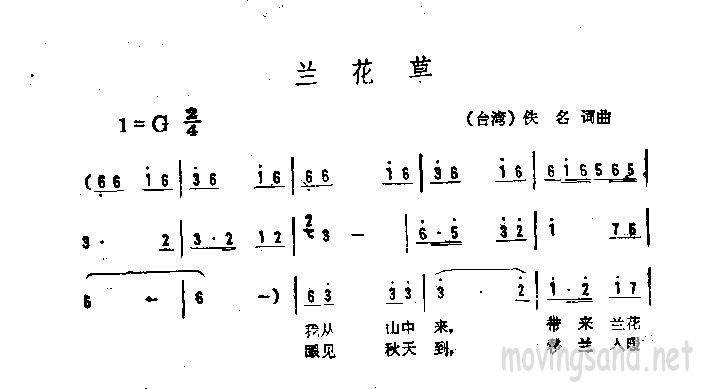 兰 花 草
1=G 2/4
(台湾)佚 名 词曲
(6 6 i 6 | 3 6 i 6 | 6 6 i 6 | 3 6 i 6 | 6 i 6 5 6 5
3 · 2 | 3 · 2 1 2 | 3 — | 6 · 5 3 2 | i 7 6
6 — | 6 —) | 6 3 3 3 | 3 · 2 | i · 2 i 7
我从 山中 来, 带 来 兰花
眼见 秋天 到, 兰 入暖
movingsand.net